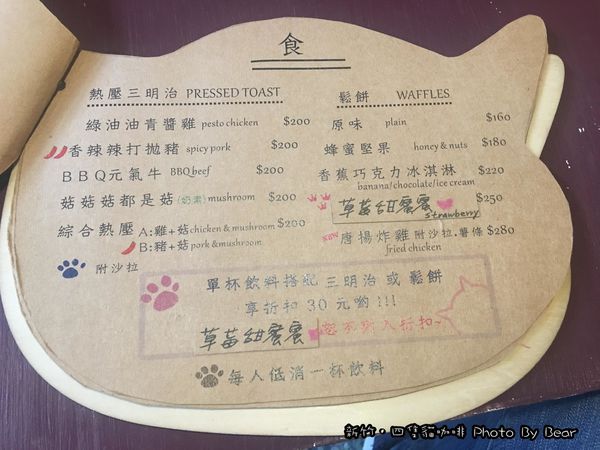 食
熱壓三明治 PRESSED TOAST
綠油油青醬雞 pesto chicken $200
香辣辣打拋豬 spicy pork $200
BBQ元氣牛 BBQ beef $200
菇菇菇都是菇(奶素) mushroom $200
綜合熱壓 A:雞+菇 chicken & mushroom $200
B:豬+菇 pork & mushroom
附沙拉
鬆餅 WAFFLES
原味 plain $160
蜂蜜堅果 honey & nuts $180
香蕉巧克力冰淇淋 $220
banana/chocolate/ice cream
草莓甜蜜蜜 $250
strawberry
唐揚炸雞 附沙拉.薯條 $280
fried chicken
單杯飲料搭配三明治或鬆餅
享折扣30元喲!!!
草莓甜蜜蜜 恕不列入折扣~
每人低消一杯飲料
新竹·四隻貓咖啡 Photo By Bear